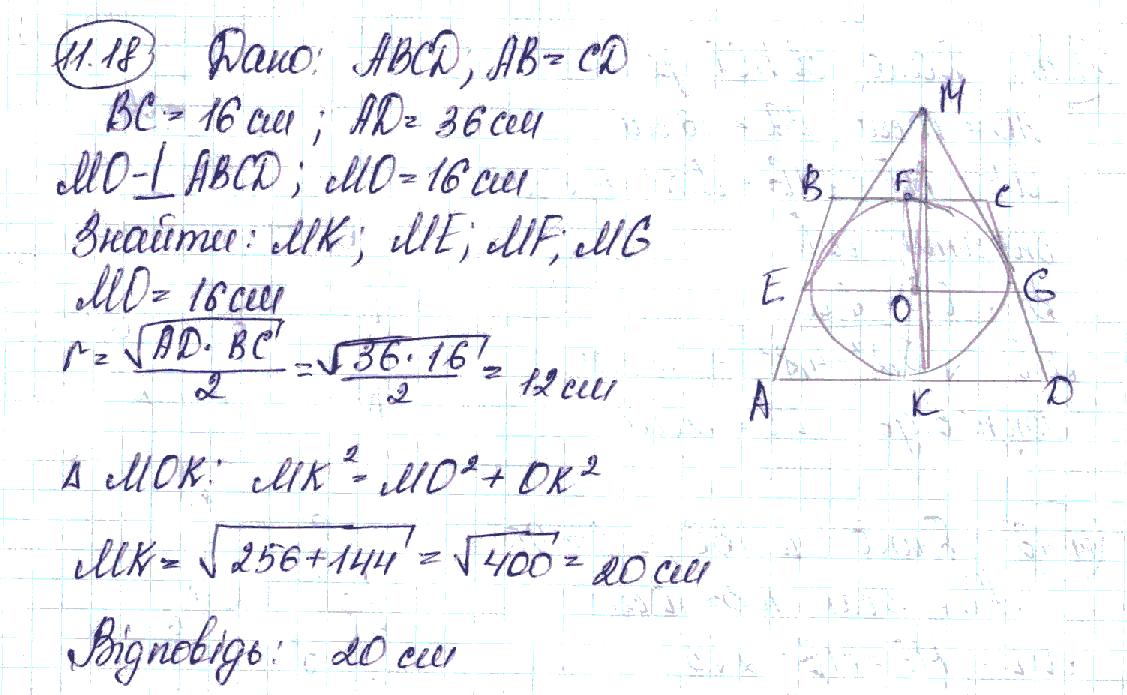 11.18 Дано: ABCD, AB = CD
BC = 16 см ; AD = 36 см
MO ⊥ ABCD ; MO = 16 см
Знайти: MK; ME; MF; MG
MO = 16 см
r = √AD · BC / 2 = √36 · 16 / 2 = 12 см
Δ MOK: MK² = MO² + OK²
MK = √256+144 = √400 = 20 см
Відповідь: 20 см
M
B F C
E O G
A K D